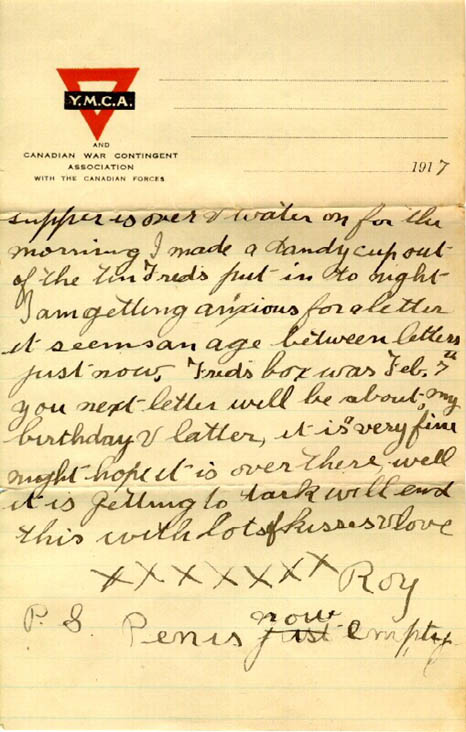 Y.M.C.A.
AND
CANADIAN WAR CONTINGENT
ASSOCIATION
WITH THE CANADIAN FORCES
1917
supper is over & water on for the
morning I made a dandy cup out
of the tin Freds put in to night
I am getting anxious for a letter
it seems an age between letters
just now, Freds box was Feb. 7th
you next letter will be about my
birthday & latter, it is very fine
night hope it is over there, well
it is getting to dark will end
this with lots of kisses & love
XXXXXXX Roy
P.S. Pen is now empty